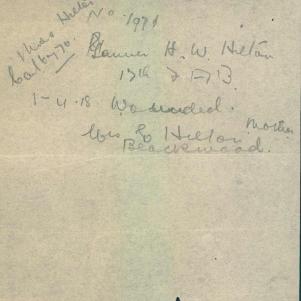 Miss Hilton
No. 1971
Gunner H. W. Hilton
17th FAB.
1-4-18. Wounded.
Mrs E Hilton Mother
Blackwood.